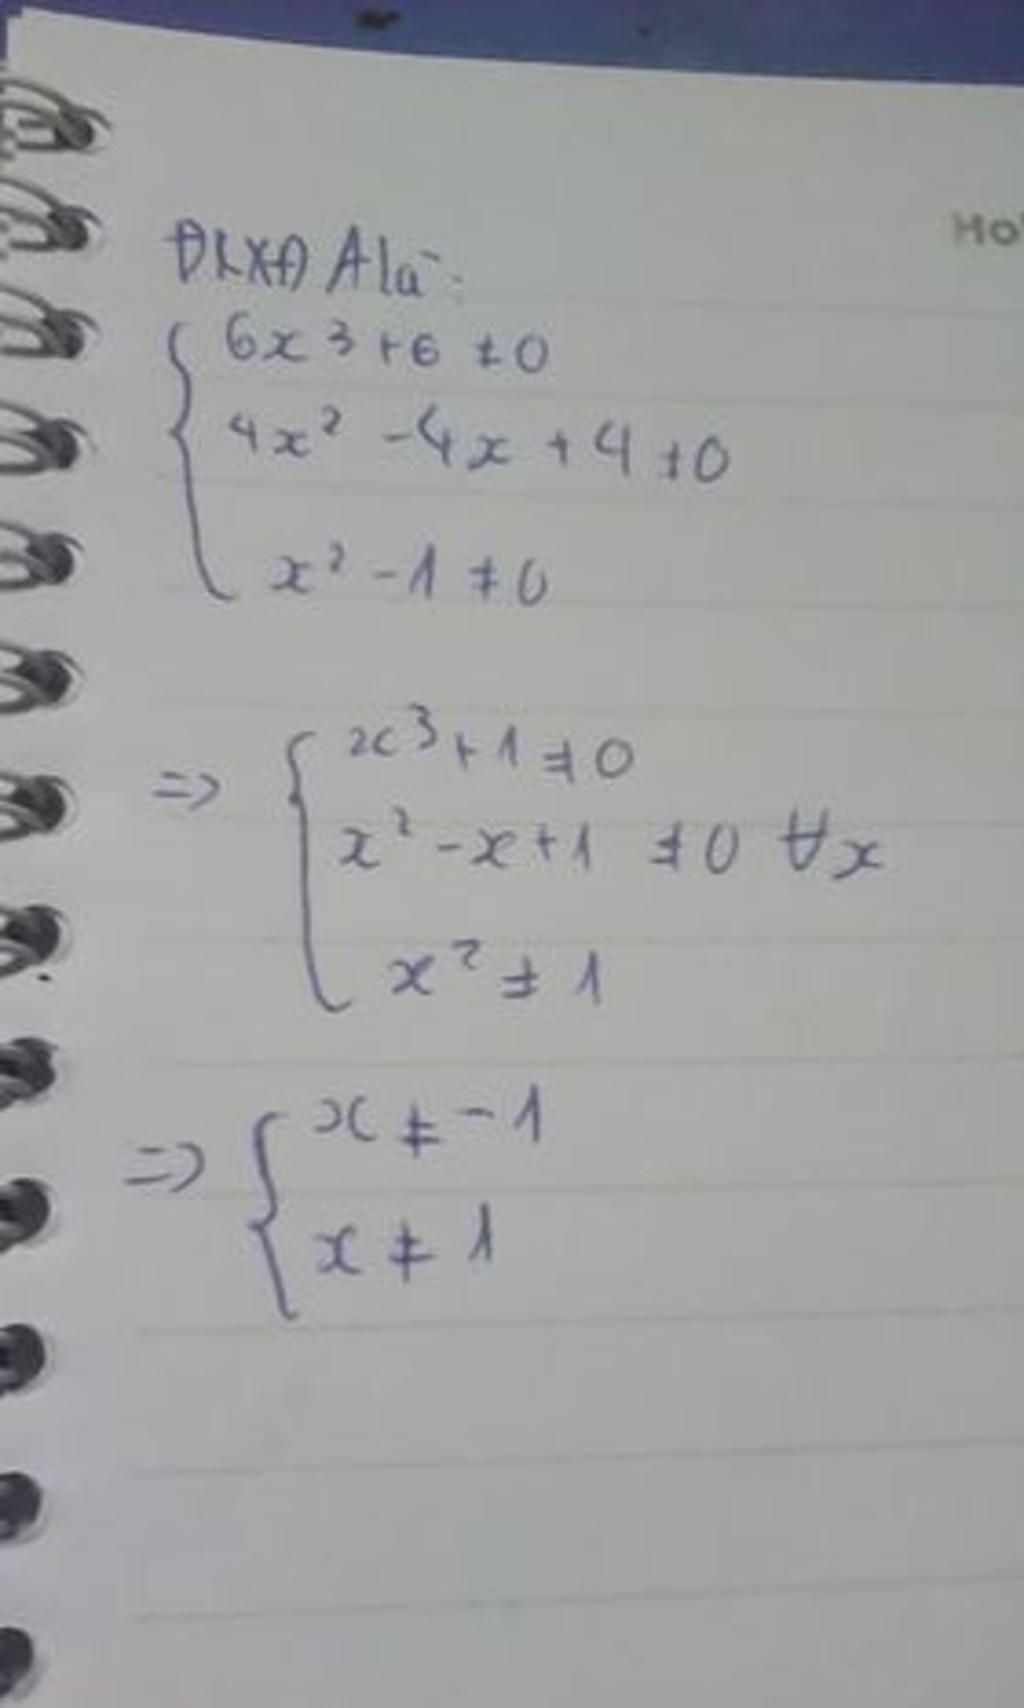 Ho
ĐKXĐ A là:
6x³+6 ≠0
4x² -4x +4 ≠0
x² -1 ≠0
=> x³+1 ≠0
x² -x+1 ≠0 ∀x
x² ≠ 1
=> x ≠ -1
x ≠ 1